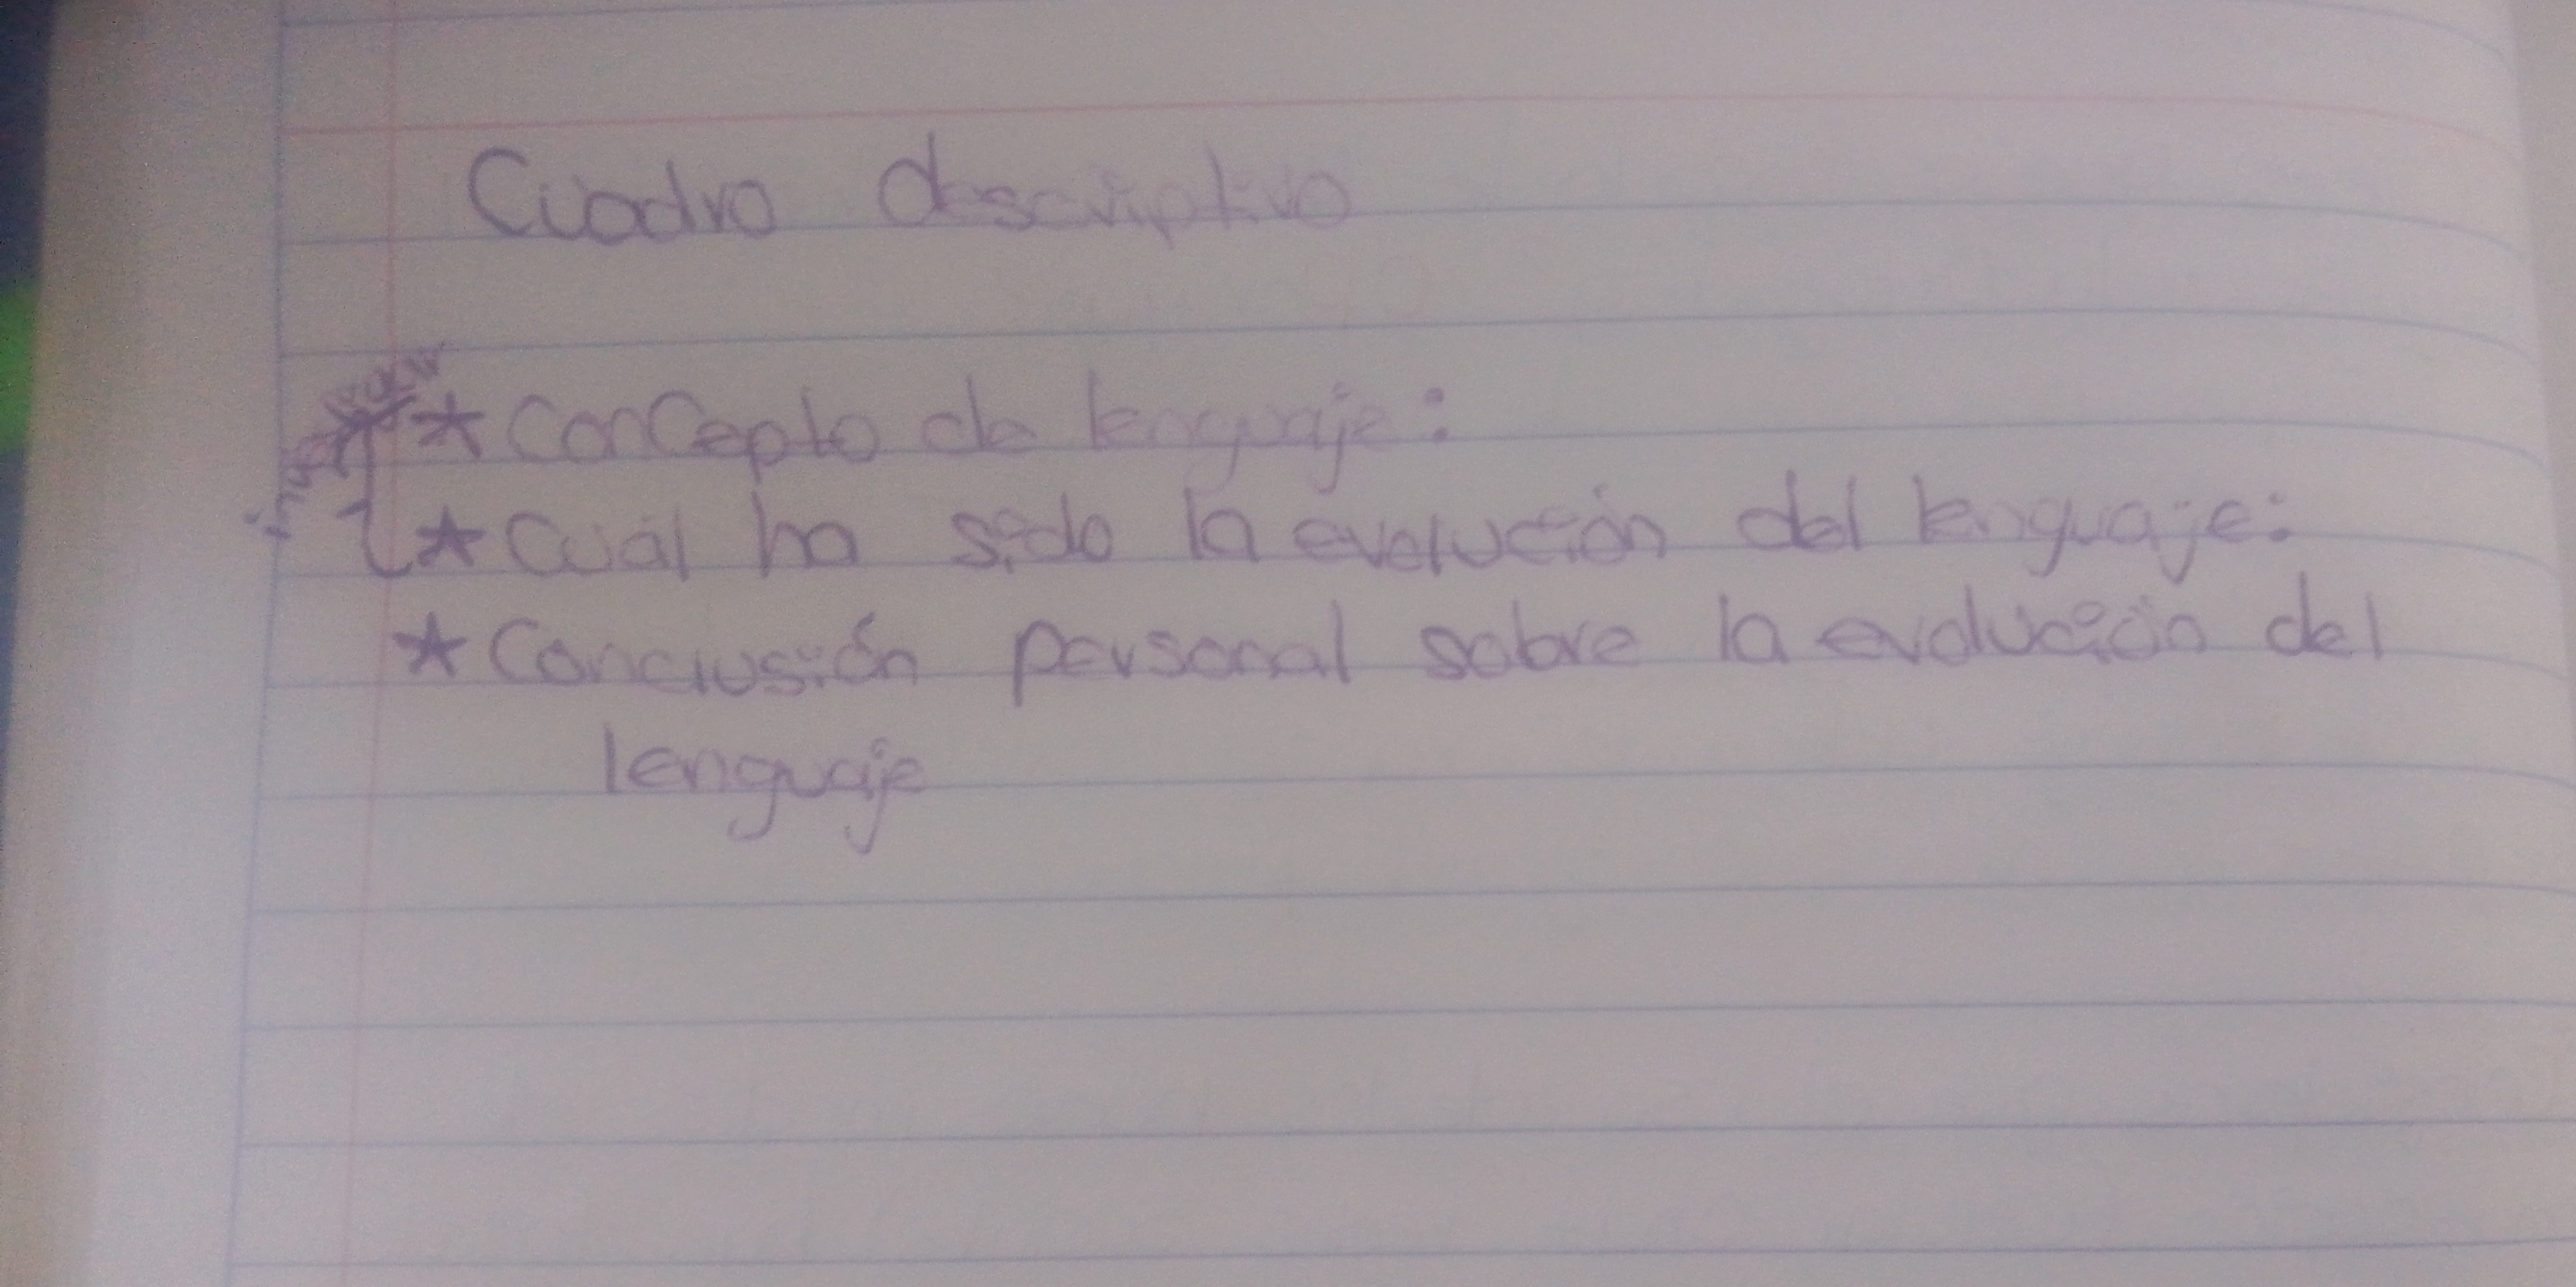 Cuadro descriptivo
investigar
* Concepto de lenguaje:
* Cuál ha sido la evolución del lenguaje:
* Conclusión personal sobre la evolución del
lenguaje